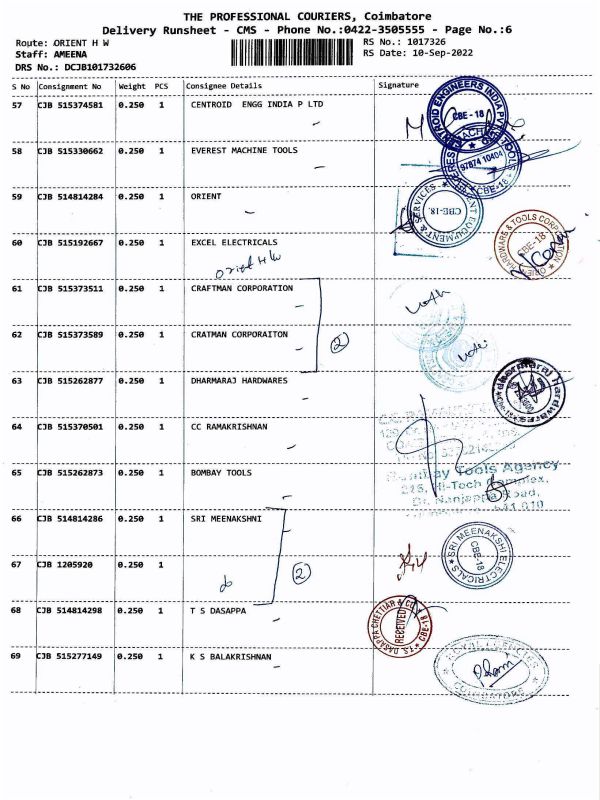 THE PROFESSIONAL COURIERS, Coimbatore
Delivery Runsheet - CMS - Phone No.:0422-3505555 - Page No.:6
Route: ORIENT H W RS No.: 1017326
Staff: AMEENA RS Date: 10-Sep-2022
DRS No.: DCJB101732606
S No Consignment No Weight PCS Consignee Details Signature
57 CJB 515374581 0.250 1 CENTROID ENGG INDIA P LTD
CBE - 18
58 CJB 515330662 0.250 1 EVEREST MACHINE TOOLS
97874 10404
CBE-18
59 CJB 514814284 0.250 1 ORIENT
EQUIPMENT & SERVICES
CBE-18.
60 CJB 515192667 0.250 1 EXCEL ELECTRICALS
HARDWARE & TOOLS CORPORATION
CBE-18
Orient H W
61 CJB 515373511 0.250 1 CRAFTMAN CORPORATION
62 CJB 515373589 0.250 1 CRATMAN CORPORAITON
2
63 CJB 515262877 0.250 1 DHARMARAJ HARDWARES
dharmaraj hardwares
64 CJB 515370501 0.250 1 CC RAMAKRISHNAN
65 CJB 515262873 0.250 1 BOMBAY TOOLS
Bombay Tools Agency
226, Hi-Tech Complex,
Dr. Nanjappa Road,
66 CJB 514814286 0.250 1 SRI MEENAKSHNI
SRI MEENAKSHI ELECTRICALS
CBE-18
67 CJB 1205920 0.250 1
2
68 CJB 514814298 0.250 1 T S DASAPPA
T.S. DASAPPA CHETTIAR & CO
RECEIVED
CBE-18
69 CJB 515277149 0.250 1 K S BALAKRISHNAN
ROYAL AGENCIES
COIMBATORE